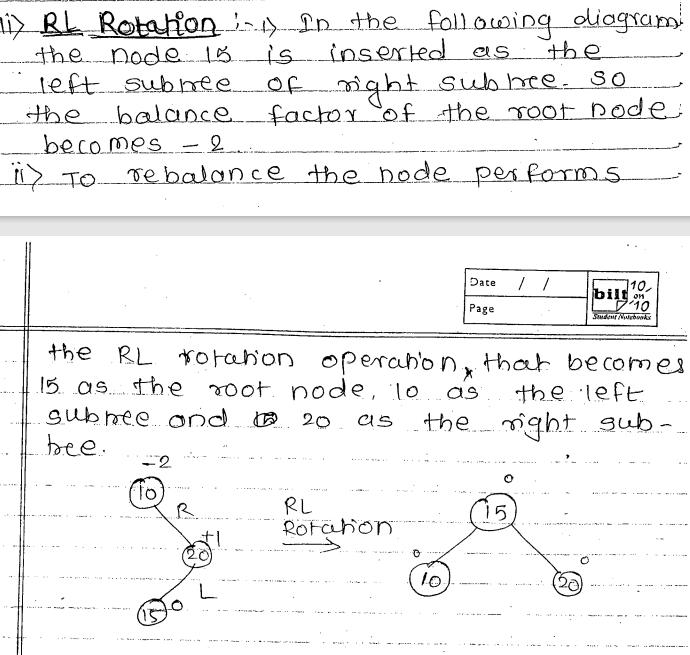 ii) RL Rotation :- i) In the following diagram
the node 15 is inserted as the
left subtree of right subtree. so
the balance factor of the root node
becomes -2
ii) To rebalance the node performs
Date / /
Page
bilt 10 on 10
Student Notebooks
the RL rotation operation, that becomes
15 as the root node, 10 as the left
subtree and 20 as the right sub-
tree.
-2
10
R
+1
20
L
15 0
RL
Rotation
0
15
0
10
0
20